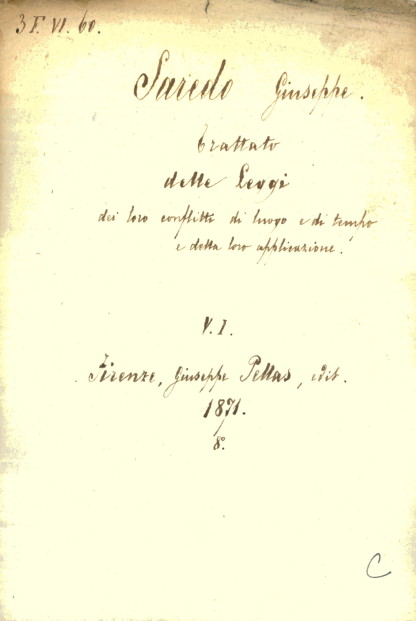 3 F. VI. 60.
Saredo Giuseppe.
Trattato
delle Leggi
dei loro conflitti di luogo e di tempo
e della loro applicazione.
V. I.
Firenze, Giuseppe Pellas, edit.
1871.
8°.
C